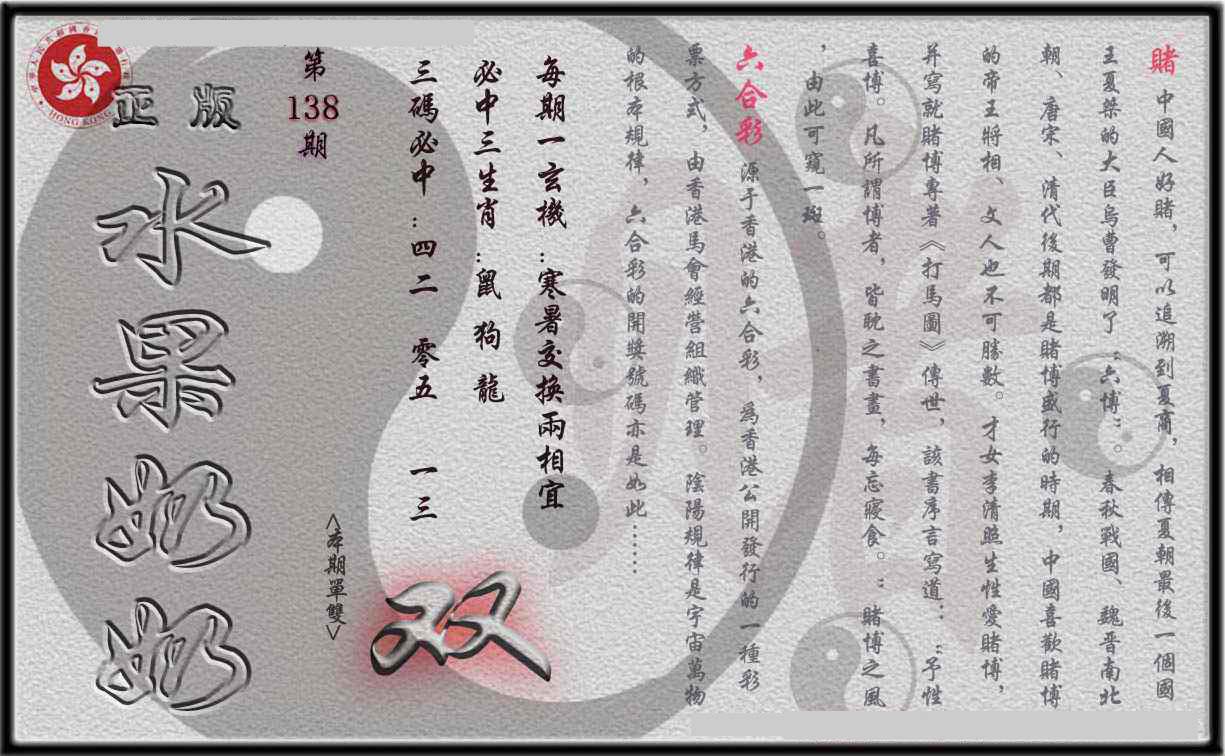 賭 中國人好賭，可以追溯到夏商，相傳夏朝最後一個國
王夏桀的大臣烏曹發明了“六博”。春秋戰國、魏晉南北
朝、唐宋、清代後期都是賭博盛行的時期，中國喜歡賭博
的帝王將相、文人也不可勝數。才女李清照生性愛賭博，
并寫就賭博專著《打馬圖》傳世，該書序言寫道：“予性
喜博。凡所謂博者，皆耽之書畫，每忘寢食。”賭博之風
，由此可窺一斑。
六合彩 源于香港的六合彩，爲香港公開發行的一種彩
票方式，由香港馬會經營組織管理。陰陽規律是宇宙萬物
的根本規律，六合彩的開獎號碼亦是如此……
每期一玄機：寒暑交換兩相宜
必中三生肖：鼠 狗 龍
三碼必中：四二 零五 一三
第138期
<本期單雙>
双
正版
水果奶奶
HONG KONG